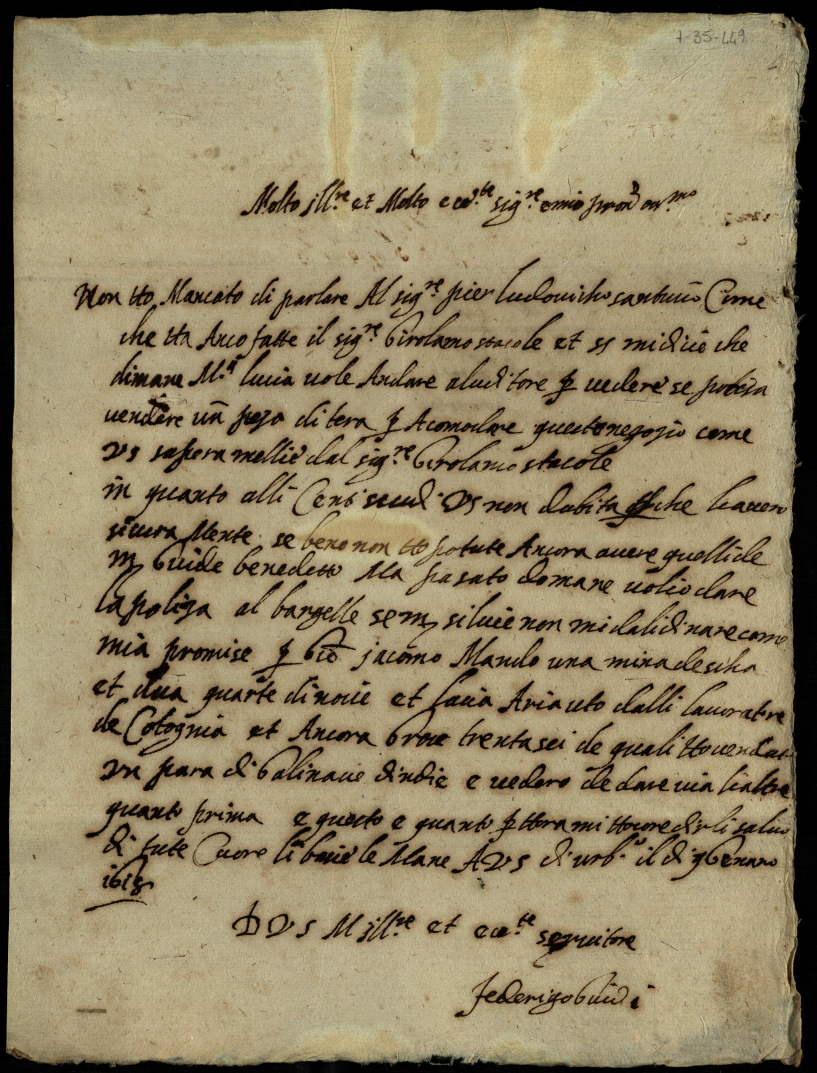 7-35-449
Molto jll.re et Molto ecc.te sig.re emio
Non tto Mancato di parlare Al sig.re pier ludovicho santucio Come
che tta Anco fatte il sig.re Girolamo stacole et si midicie che
dimane M.a lucia vole Andare aluditore p vedere se
vendere un peza di tera p Acomodare questo negozio come
VS sapera mellie dal sig.re Girolamo stacole
in quanto alli Cento scudi VS non dubita che li avero
sicura Mente se bene non tto potute Ancora avere quelli de
Guide benedetto Ma pasato domane volio dare
la poliza al bargelle se silvie non mi da li dinare come
mia promise p jacomo Mando una mina de
et dua quarte di nocie et favia Ari auto dalli lavoratore
de Cotognia et Ancora trenta sei de quali tto vendut
un para di Galinacie dindie e vedero de dare via li altre
quanto prima e questo e quanto p ttora mi ttocore dirli salvo
di tute Cuore li bacie le Mane A VS di urb.o il di 9 Genaro
1618
D VS M jll.re et ecc.te servitore
federigo Guidi